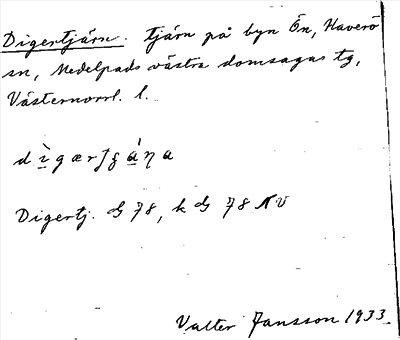 Digertjärn. tjärn på byn Ön, Haverö
sn, Medelpads västra domsagas tg,
Västernorrl. l.
Digertj. G 78, k G 78 NV
Valter Jansson 1933.